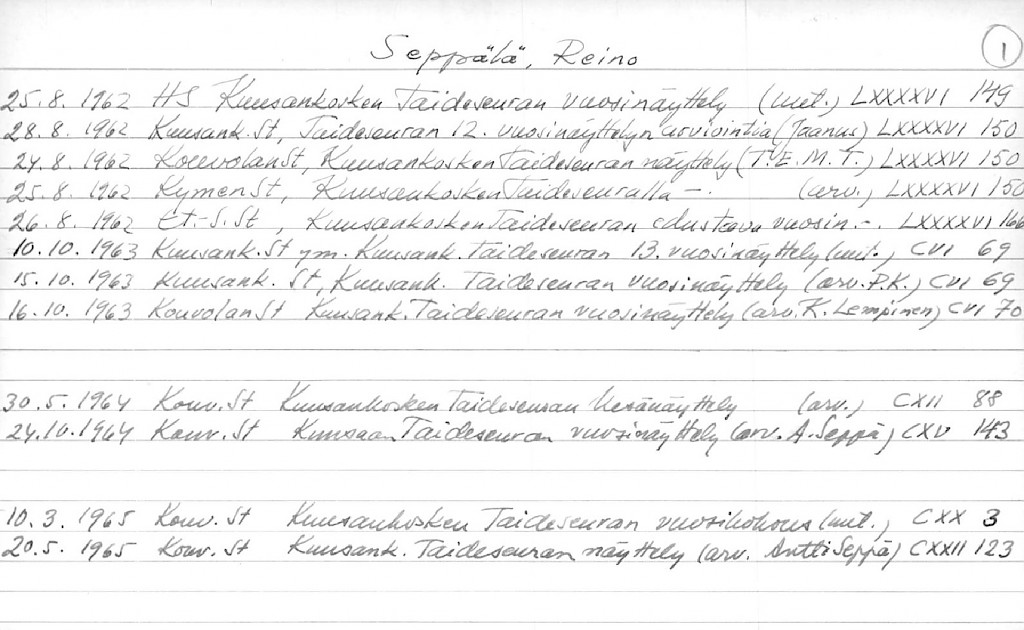 Seppälä, Reino
1
25.8. 1962 HS Kuusankosken Taideseuran vuosinäyttely (uut.) LXXXXVI 149
28.8. 1962 Kuusank. St, Taideseuran 12. vuosinäyttelyn arviointia (Jaanus) LXXXXVI 150
24.8. 1962 Kouvolan St, Kuusankosken Taideseuran näyttely (T.E.M.T.) LXXXXVI 150
25.8. 1962 Kymen St, Kuusankosken Taideseuralla -. (arv.) LXXXXVI 150
26.8. 1962 Et.-S. St, Kuusankosken Taideseuran edustava vuosin. -. LXXXXVI
10.10. 1963 Kuusank. St ym. Kuusank. Taideseuran 13. vuosinäyttely (uut.) CVI 69
15.10. 1963 Kuusank. St, Kuusank. Taideseuran vuosinäyttely (arv. P.K.) CVI 69
16.10. 1963 Kouvolan St Kuusank. Taideseuran vuosinäyttely (arv. K. Lempinen) CVI 70
30.5. 1964 Kouv. St Kuusankosken Taideseuran kesänäyttely (arv.) CXII 88
24.10. 1964 Kouv. St Kuusaan Taideseuran vuosinäyttely (arv. A. Seppä) CXV 143
10.3. 1965 Kouv. St Kuusankosken Taideseuran vuosikokous (uut.) CXX 3
20.5. 1965 Kouv. St Kuusank. Taideseuran näyttely (arv. Antti Seppä) CXXII 123